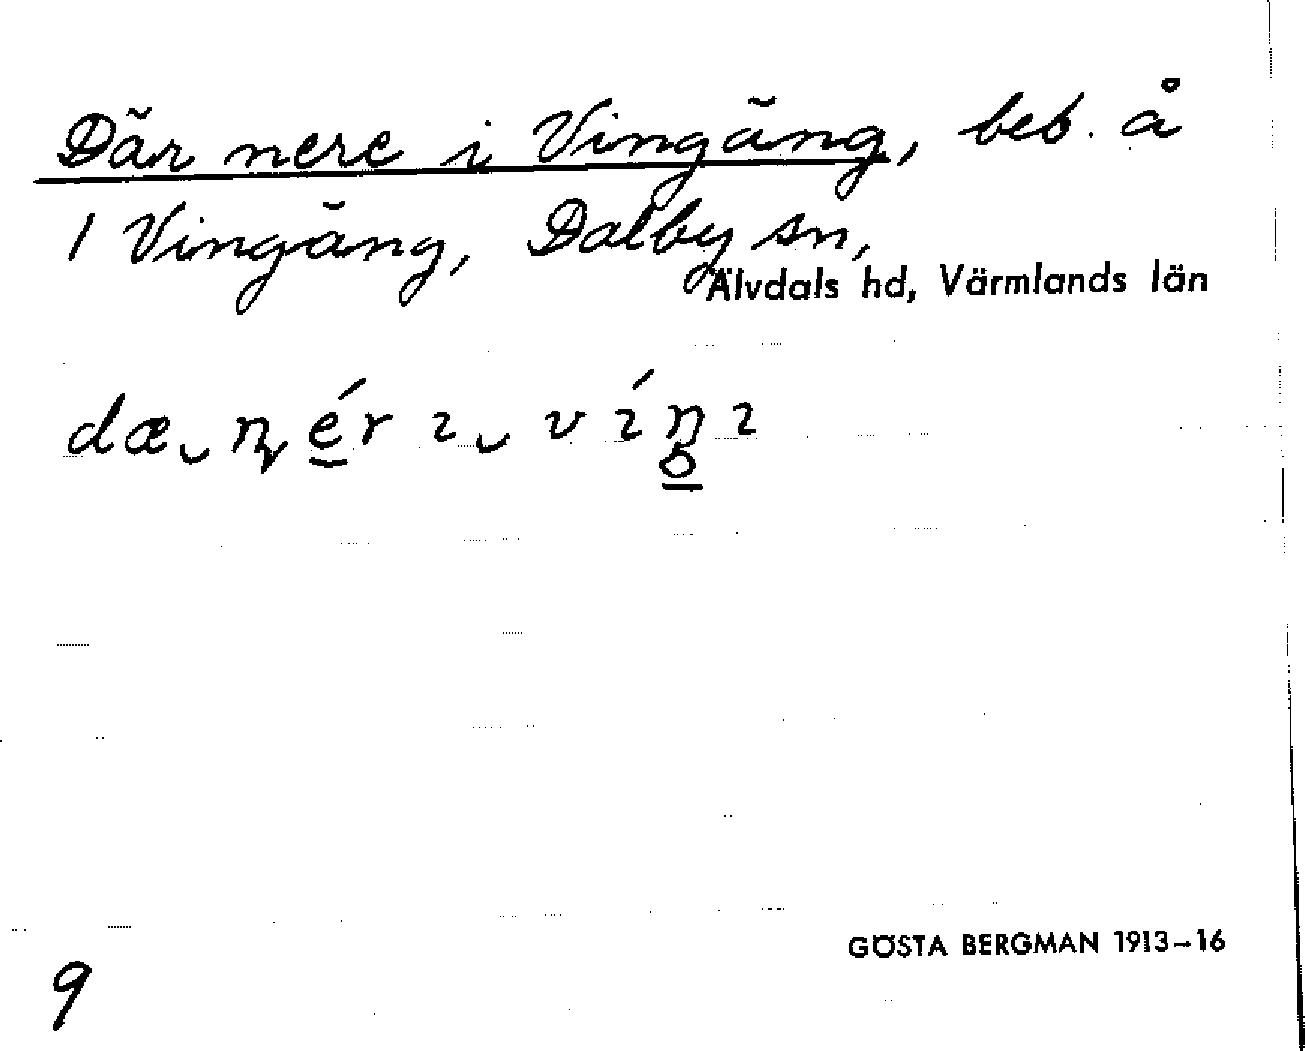 Där nere i Vingäng, beb. å
1 Vingäng, Dalby sn,
Älvdals hd, Värmlands län
dæ‿ɳ ér ɪ‿v íŋ̥ ɪ
GÖSTA BERGMAN 1913–16
9